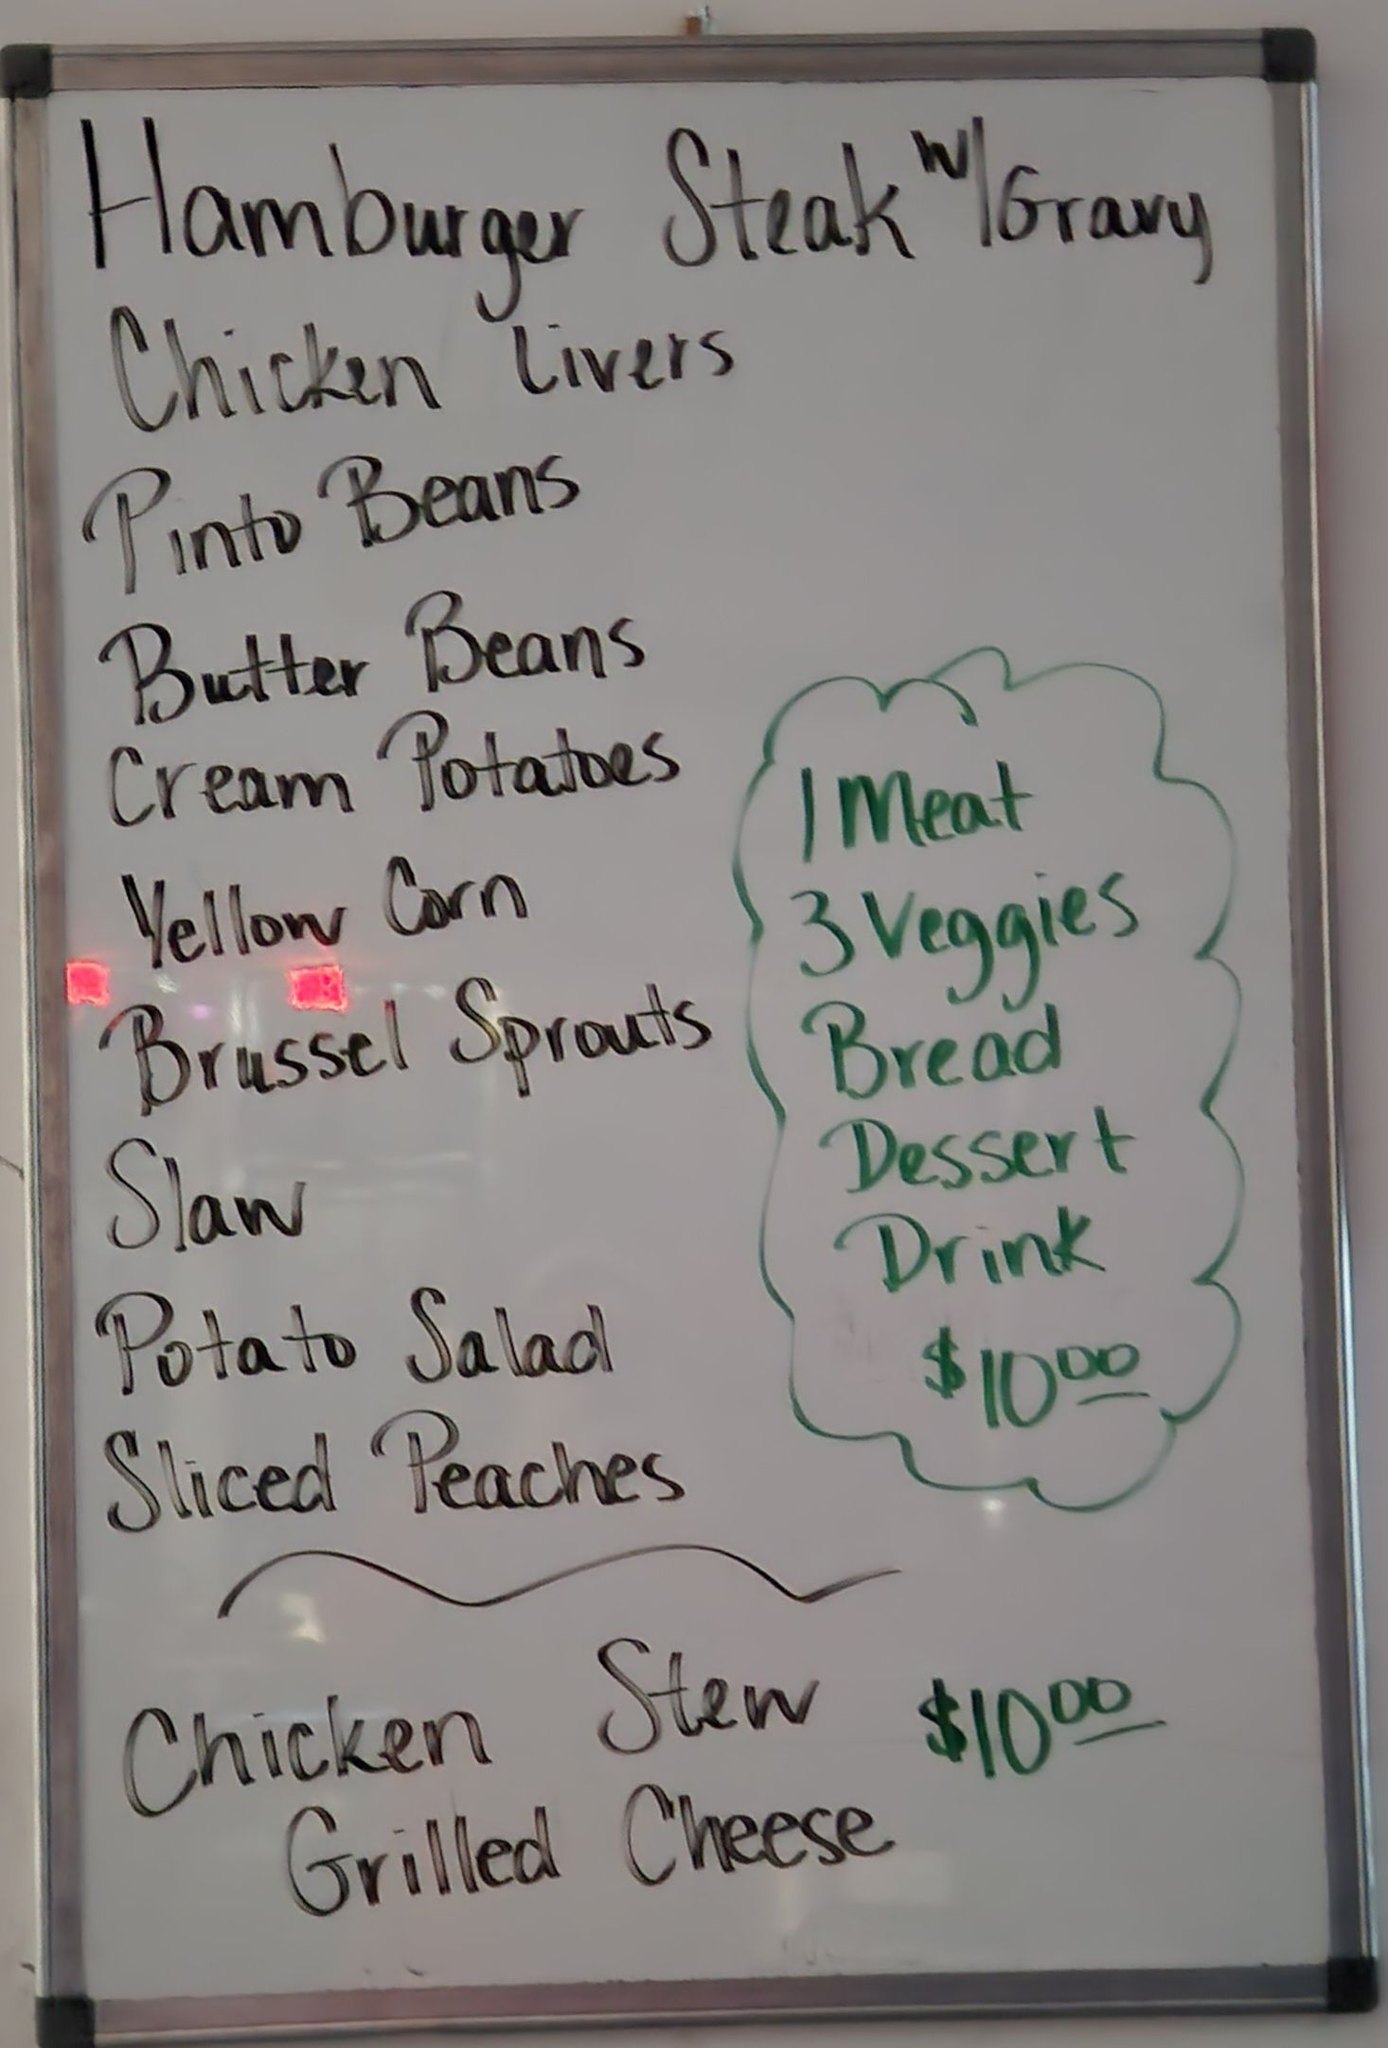 Hamburger Steak w/Gravy
Chicken Livers
Pinto Beans
Butter Beans
Cream Potatoes
Yellow Corn
Brussel Sprouts
Slaw
Potato Salad
Sliced Peaches
1 Meat
3 Veggies
Bread
Dessert
Drink
$10.00
Chicken Stew $10.00
Grilled Cheese